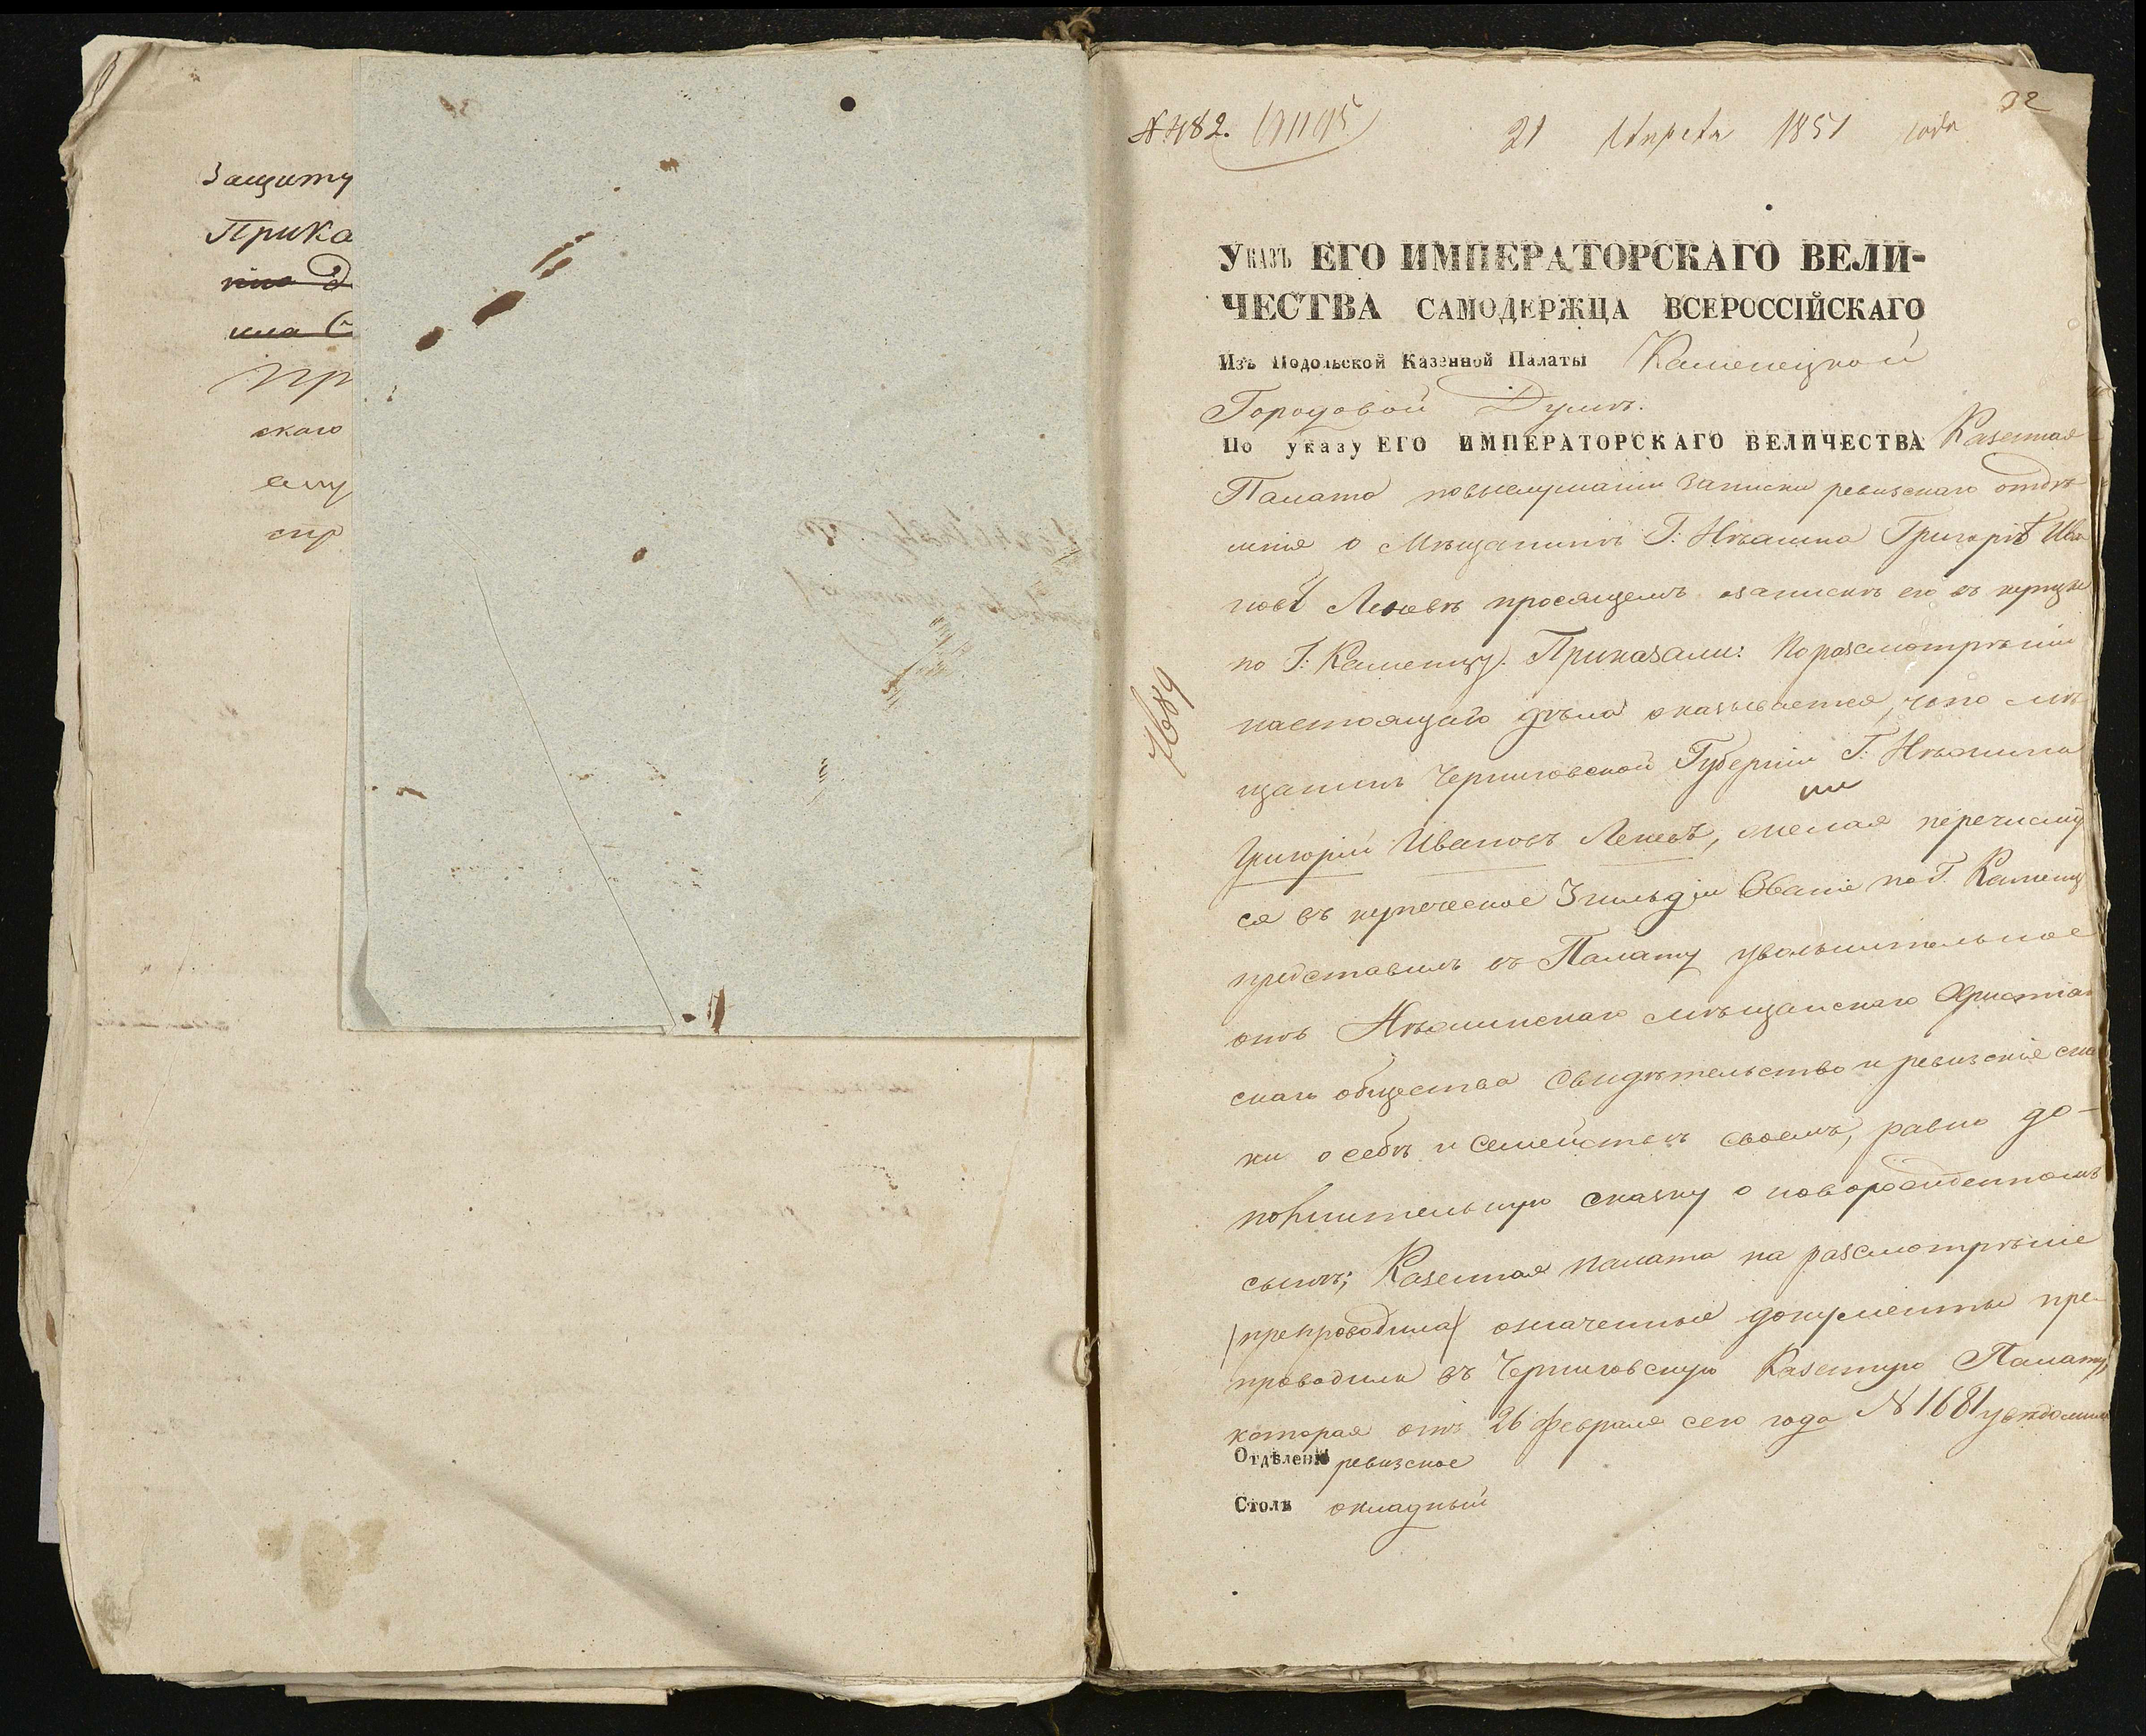 Защиту
Прика
нию д
ила С
Пр
скаго
ему
стр
32
№ 482.
21 Апреля 1851 года
Указъ ЕГО ИМПЕРАТОРСКАГО ВЕЛИ-
ЧЕСТВА САМОДЕРЖЦА ВСЕРОССІЙСКАГО
Изъ Подольской Казенной Палаты Каменецкой
Городовой Думѣ.
По указу ЕГО ИМПЕРАТОРСКАГО ВЕЛИЧЕСТВА Казенная
Палата по выслушаніи записки ревизскаго отдѣ
ленія о Мѣщанинѣ Г: Нѣжина Григорѣ Ива
новѣ просящемъ о запискѣ его въ купцы
по Г: Каменцу. Приказали: По разсмотрѣніи
настоящаго дѣла оказывается, что мѣ
щанинъ Черниговской Губерніи Г: Нѣжина
Григорій Ивановъ желая перечислит
ся въ купеческое 3 гильдіи Званіе по Г. Каменцу
представилъ въ Палату увольнительное
отъ Нѣжинскаго мѣщанскаго Христіан
скаго общества свидѣтельство и ревизскіе сказ
ки о себѣ и семействѣ своемъ, равно до-
полнительную сказку о новорожденномъ
сынѣ; Казенная палата на разсмотрѣніе
препроводила означенные документы пре-
проводила въ Черниговскую Казенную Палату,
которая отъ 26 февраля сего года № 1681 увѣдомила
7689
Отдѣленіе ревизское
Столъ окладный